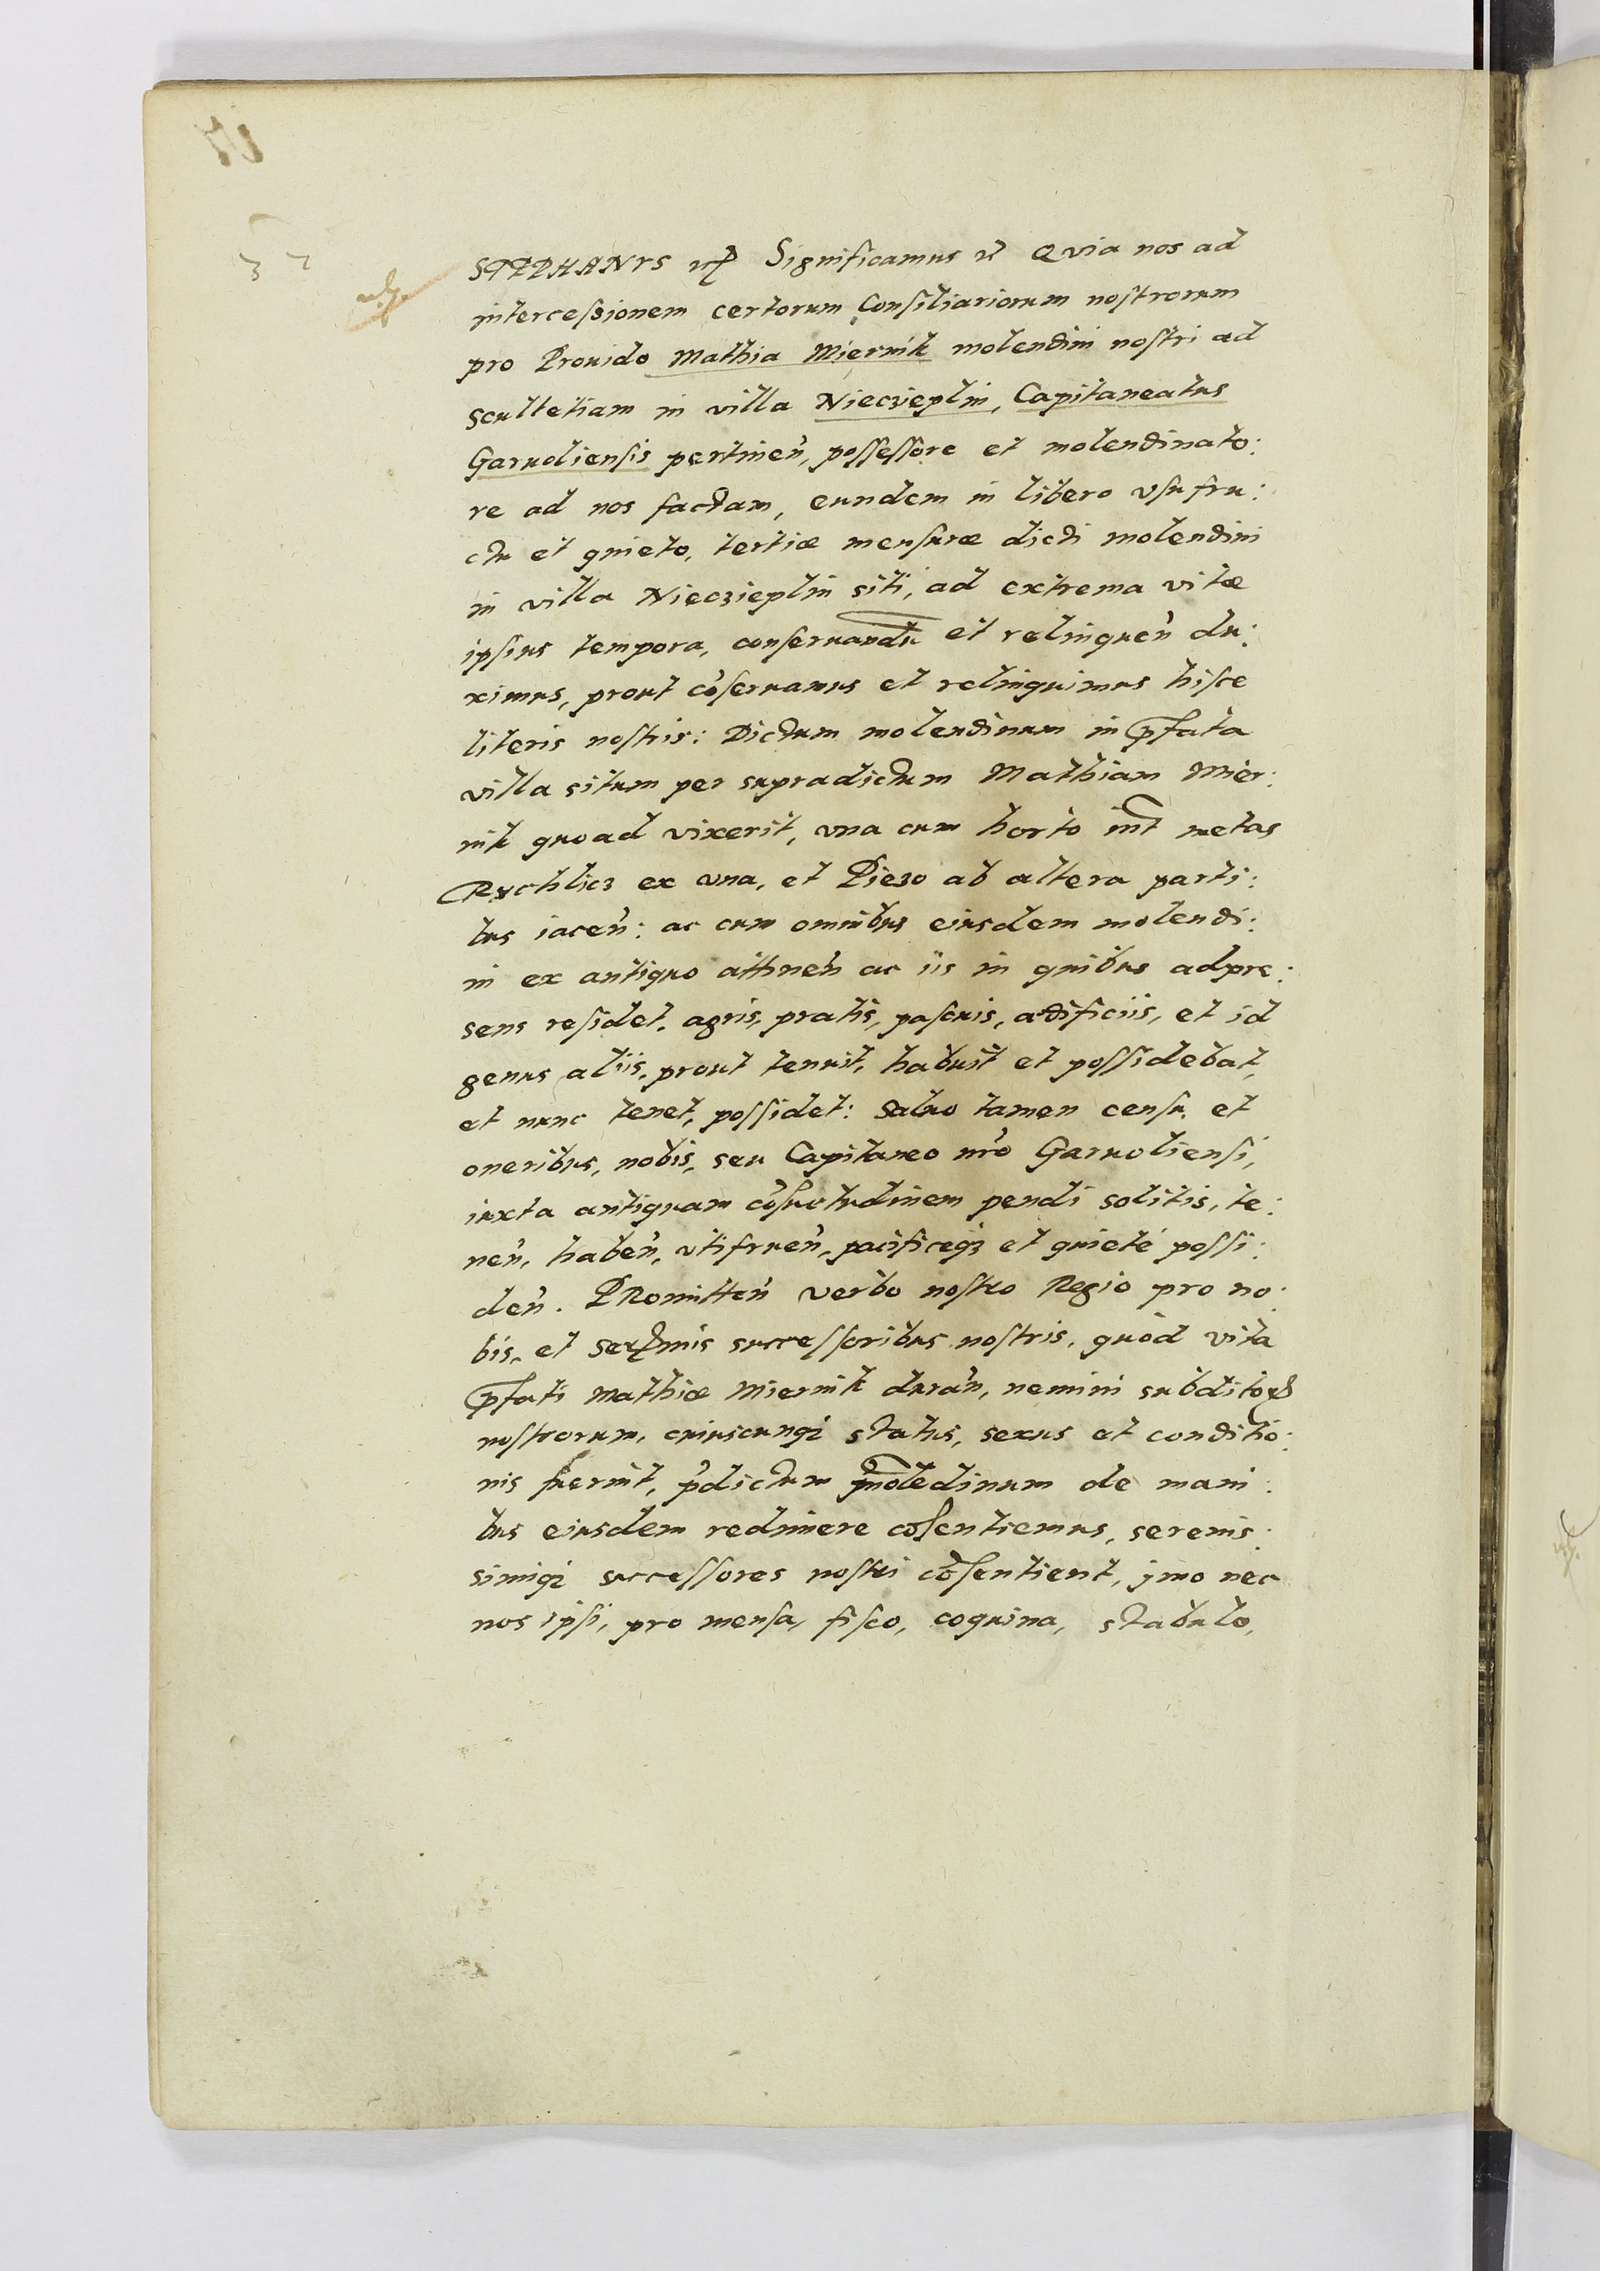 STEPHANVS etc Significamus etc Qvia nos ad
intercessionem certorum Consiliariorum nostrorum
pro Prouido Mathia Miernik molendini nostri ad
scultetiam in villa Nieczieplin, Capitaneatus
Garuoliensis pertinen̄, possessore et molendinato:
re ad nos factam, eundem in libero vsufru:
ctu et quieto, tertiæ mensuræ dicti molendini
in villa Nieczieplin siti, ad extrema vitæ
ipsius tempora, conseruandū et relinquen̄ du:
ximus, prout cōseruamus et relinquimus hisce
literis nostris: Dictum molendinum in p̄fata
villa situm per supradictum Mathiam Mier:
nik quoad vixerit, vna cum horto int̄ metas
Rychlicz ex vna, et Piezo ab altera parti:
bus iacen̄: ac cum omnibus eiusdem molendi:
ni ex antiquo attinen̄ ac iis in quibus adpre:
sens residet, agris, pratis, pascuis, ædificiis, et id
genus aliis, prout tenuit, habuit et possidebat,
et nunc tenet, possidet: Saluo tamen censu et
oneribus, nobis, seu Capitaneo nr̄o Garuoliensi,
iuxta antiquam cōsuetudinem pendi solitis, te:
nen̄, haben̄, vtifruen̄, pacificeq3 et quietè possi:
den̄. PRomitten̄ verbo nostro Regio pro no:
bis, et Ser̄mis successoribus nostris, quòd vita
p̄fati Mathiæ Miernik durān, nemini subditoꝝ
nostrorum, cuiuscunq3 status, sexus et conditio:
nis fuerint, p̄dictum molēdinum de mani:
bus eiusdem redimere cōsentiemus, serenis:
simiq3 successores nostri cōsentient, ymo nec
nos ipsi, pro mensa, fisco, coquina, stabulo,